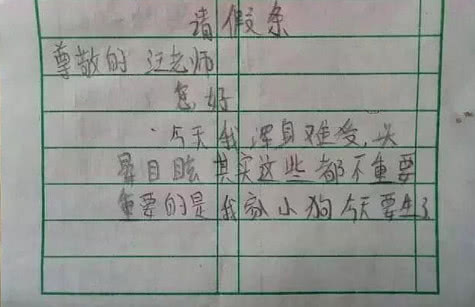 请假条
尊敬的汪老师
您好
今天我浑身难受,头
晕目眩其实这些都不重要
重要的是我家小狗今天要生了